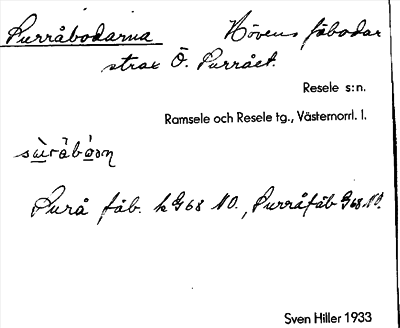 Purråbodarna Hövens fäbodar
strax Ö. Purrået.
Resele s:n.
Ramsele och Resele tg., Västernorrl. l.
Purå fäb. k G68 NO., Purråfäb G68 NO.
Sven Hiller 1933